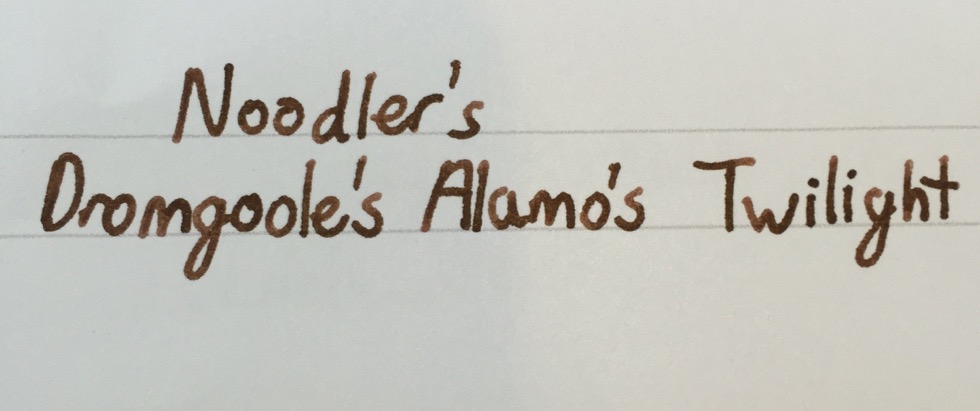 Noodler's
Dromgoole's Alamo's Twilight